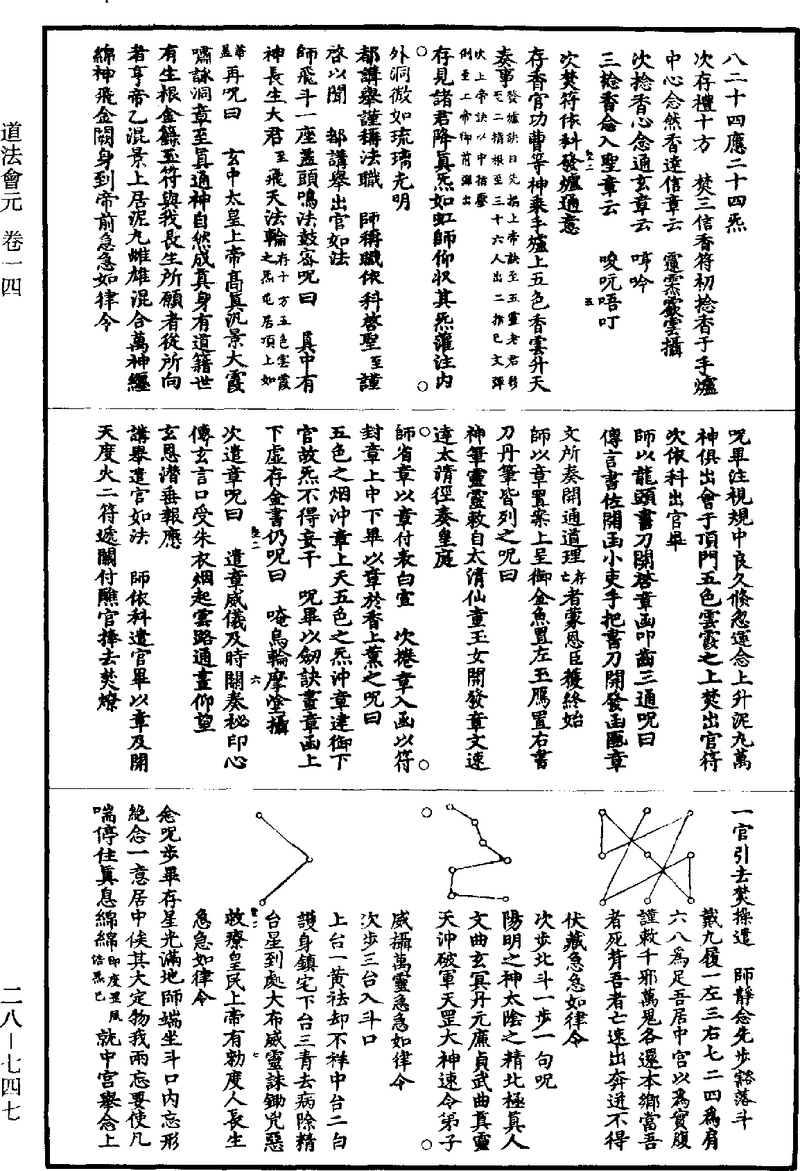 道法會元 卷一四
二八—七四七
八二十四應二十四炁
次存禮十方 焚三信香符初捻香于手爐
中心念然香達信章云 靈雲攝
次捻香心念通玄章云 吽吟
三捻香念入聖章云 唆吭唔叮
次焚符依科發爐通意
存香官功曹等神乘手爐上五色香雲升天
奏事發爐訣曰先掐上帝訣至五靈老君移至二指根至三十六人出二指巳文彈
次上帝訣以中指壓倒至上帝御前彈出
存見諸君降真炁如虹師仰收其炁灌注内
外洞徹如琉璃光明
都講舉謹稱法職 師稱職依科啓聖至謹
啓以聞 都講舉出官如法
師飛斗一座蓋頭鳴法鼓密呪曰 真中有
神長生大君至飛天法輪存十方五色雲霞之炁屯居項上如
蓋再呪曰 玄中太皇上帝高真汎景大霞
嘯詠洞章至真通神自然成真身有道籍世
有生根金籙玉符與我長生所願者從所向
者亨帝乙混景上居泥丸雌雄混合萬神纒
綿神飛金闕身到帝前急急如律令
呪畢注視規中良久倐忽運念上升泥丸萬
神俱出會于頂門五色雲霞之上焚出官符
次依科出官畢
師以龍頭書刀開啓章函叩齒三通呪曰
傳言書佐開函小吏手把書刀開發函匭章
文所奏開通道理存亡者蒙恩臣獲終始
師以章置案上呈御金魚置左玉鴈置右書
刀丹筆皆列之呪曰
神筆靈靈敕自太清仙童玉女開發章文速
達太清徑奏皇庭
師省章以章付表白宣 次捲章入函以符
封章上中下畢以章於香上薰之呪曰
五色之烟沖章上天五色之炁沖章建御下
官故炁不得妄干 呪畢以劒訣畫章函上
下虚存金書仍呪曰 唵烏輪摩堂攝
次遣章呪曰 遣章威儀及時關奏秘印心
傳玄言口受朱衣烟起雲路通盡仰望
玄恩潜垂報應
講舉遣官如法 師依科遣官畢以章及開
天度火二符遞關付醮官捧去焚燎
一官引去焚操遣 師靜念先步豁落斗
戴九履一左三右七二四為肩
六八為足吾居中宫以為實腹
謹敕千邪萬鬼各還本鄉當吾
者死背吾者亡速出奔迸不得
伏藏急急如律令
次步北斗一步一句呪
陽明之神太陰之精北極真人
文曲玄冥丹元廉貞武曲真靈
天沖破軍天罡大神速令弟子
威攝萬靈急急如律令
次步三台入斗口
上台一黄祛却不祥中台二白
護身鎮宅下台三青去病除精
台星到處大布威靈誅鋤兇惡
救療皇民上帝有勅度人長生
急急如律令
念呪步畢存星光滿地師端坐斗口内忘形
絶念一意居中俟其大定物我兩忘要使凡
喘停住真息綿綿 就中宫舉念上